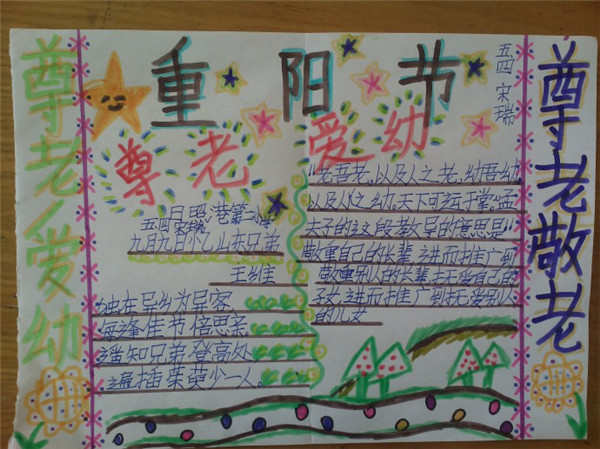 重阳节
五四 宋瑞
尊老爱幼
尊老爱幼
尊老敬老
日照港第二小学
五四宋瑞
九月九日忆山东兄弟
王维
独在异乡为异客
每逢佳节倍思亲
遥知兄弟登高处
遍插茱萸少一人。
“老吾老,以及人之老,幼吾幼
以及人之幼,天下可运于掌”孟
夫子的这段教导的意思是“
敬重自己的长辈,进而推广到
敬重别人的长辈,抚爱自己的
子女,进而推广到抚爱别人
的儿女